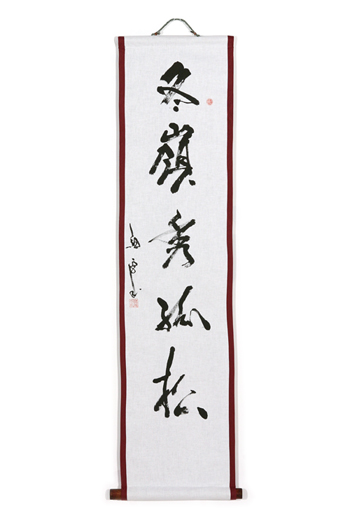 冬嶺秀孤松